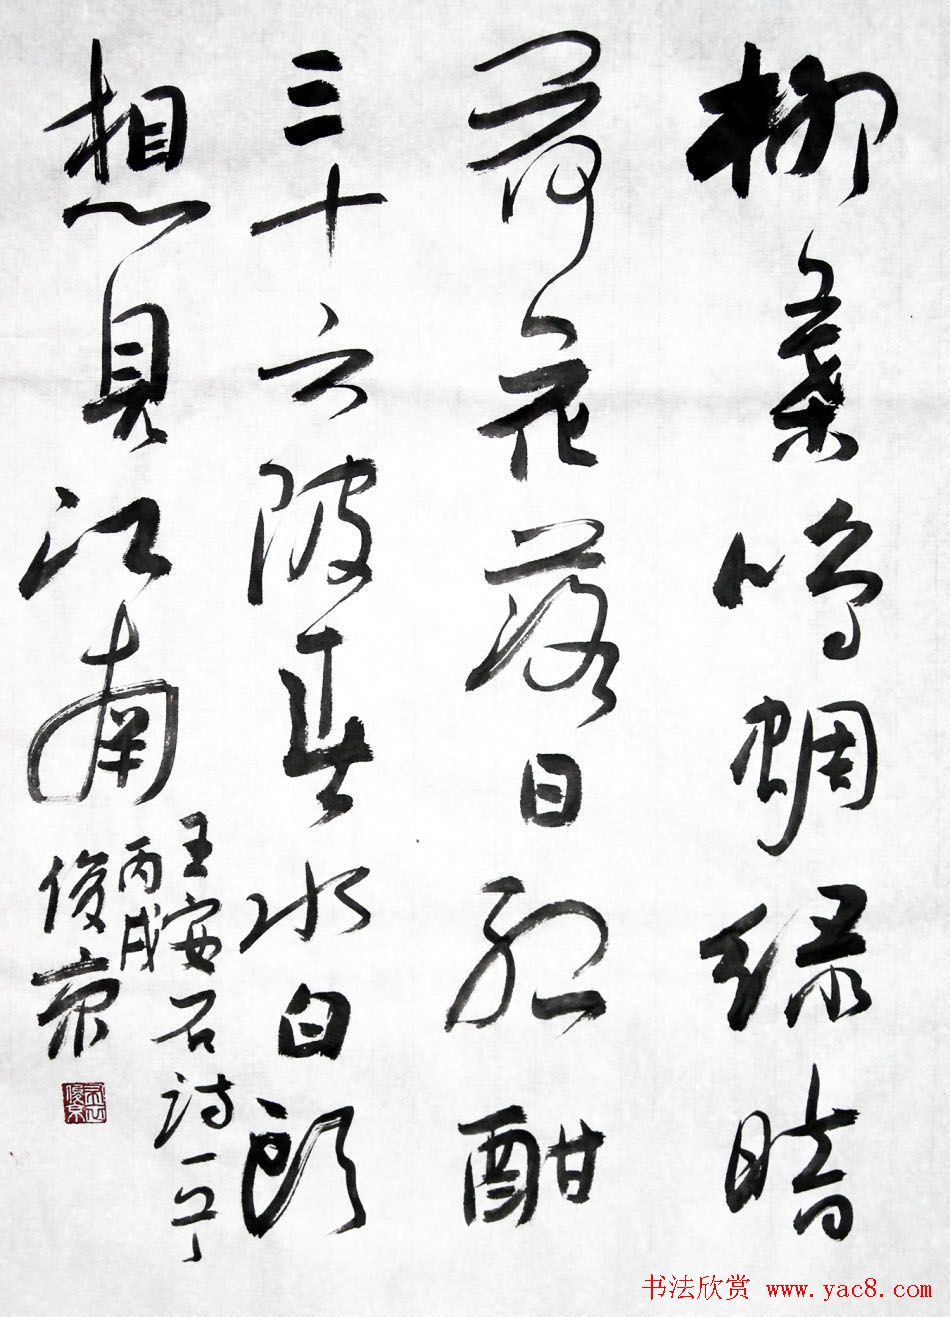 柳葉鸣蜩绿暗
荷花落日红酣
三十六陂春水白头
想見江南
王安石诗一首
丙戌
俊京
书法欣赏 www.yac8.com